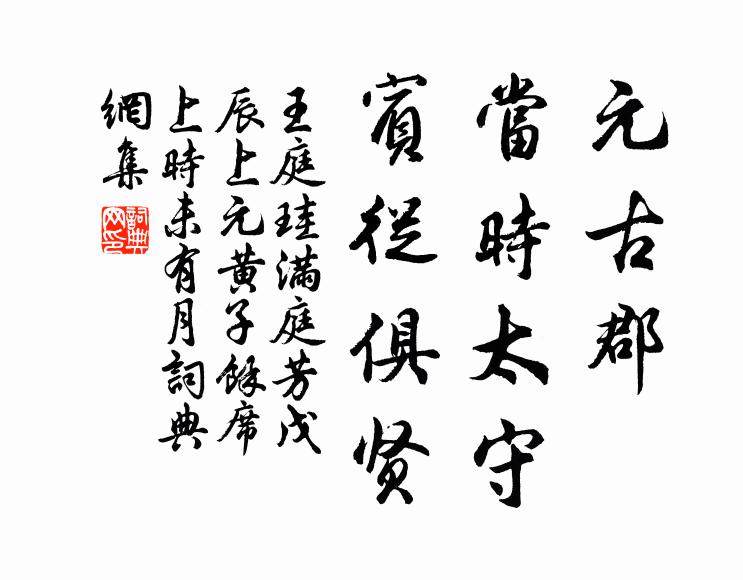 元古郡
當時太守
賓從俱贤
王庭珪满庭芳戊
辰上元黄子餘席
上時未有月詞典
網集
詞典网印